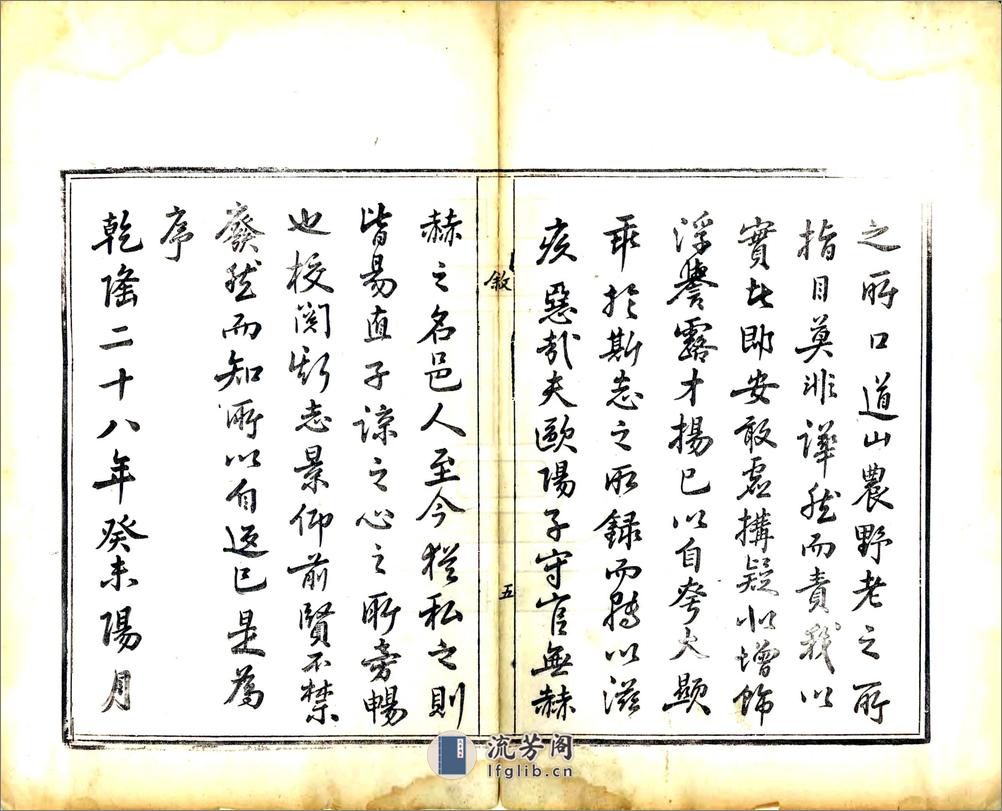 之所口道山農野老之所
指目莫非譁然而責我以
實此即安敢虛搆疑似增飾
浮譽露才揚己以自夸大顯
乖於斯志之所録而轉以滋
疚惡哉夫歐陽子守官無赫
敘
五
赫之名邑人至今猶私之則
皆易直子諒之心之所旁暢
也校閱斯志景仰前賢不禁
廢然而知所以自返已是為
序
乾隆二十八年癸未陽月
流芳阁
lfglib.cn